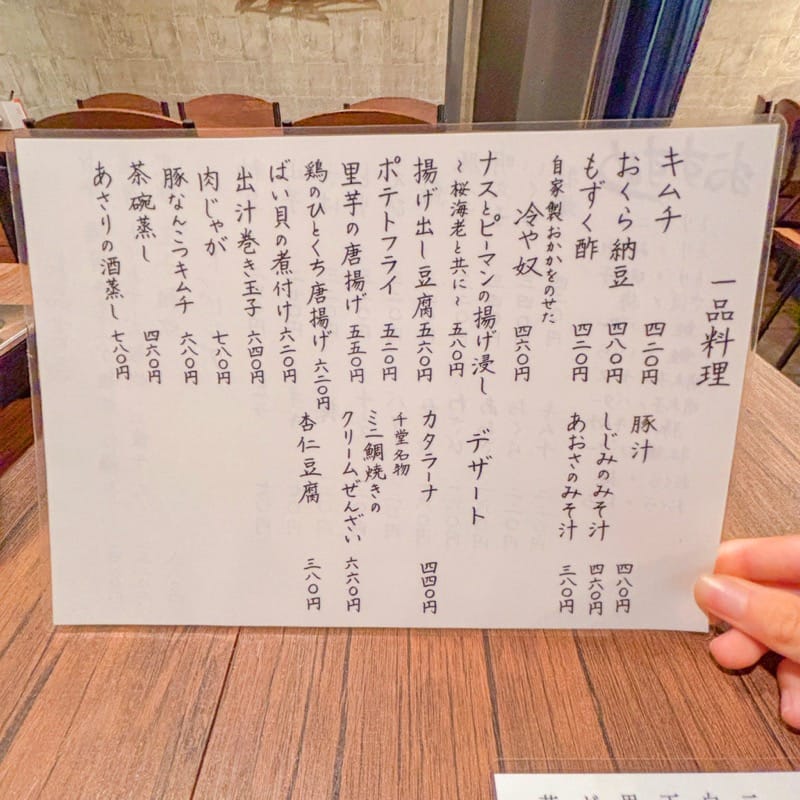 一品料理
キムチ 四二〇円
おくら納豆 四八〇円
もずく酢 四二〇円
自家製おかかをのせた
冷や奴 四六〇円
ナスとピーマンの揚げ浸し
～桜海老と共に～ 五八〇円
揚げ出し豆腐 五六〇円
ポテトフライ 五二〇円
里芋の唐揚げ 五五〇円
鶏のひとくち唐揚げ 六二〇円
ばい貝の煮付け 六二〇円
出汁巻き玉子 六四〇円
肉じゃが 七八〇円
豚なんこつキムチ 六八〇円
茶碗蒸し 四六〇円
あさりの酒蒸し 七八〇円
豚汁 四八〇円
しじみのみそ汁 四六〇円
あおさのみそ汁 三八〇円
デザート
カタラーナ 四四〇円
千堂名物
ミニ鯛焼きの
クリームぜんざい 六六〇円
杏仁豆腐 三八〇円